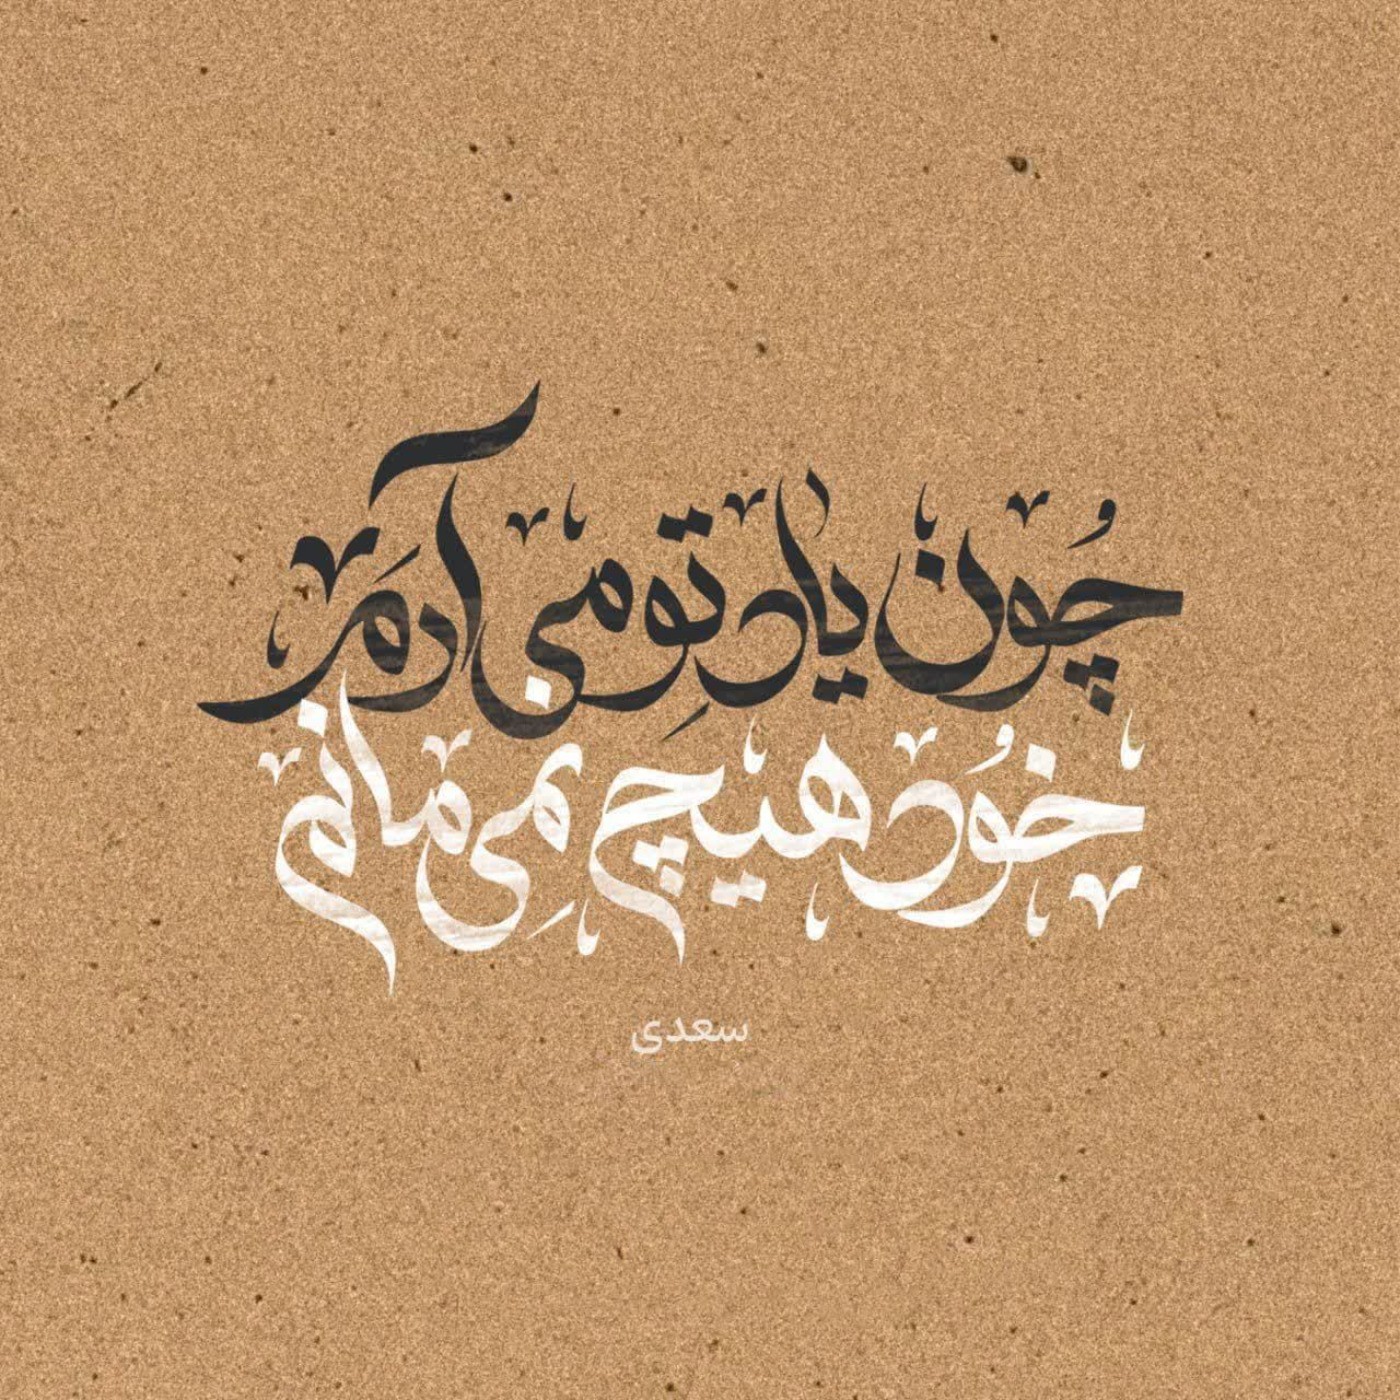 چُون یادِ تو می آرَم
خُود هیچ نِمی مانم
سعدی